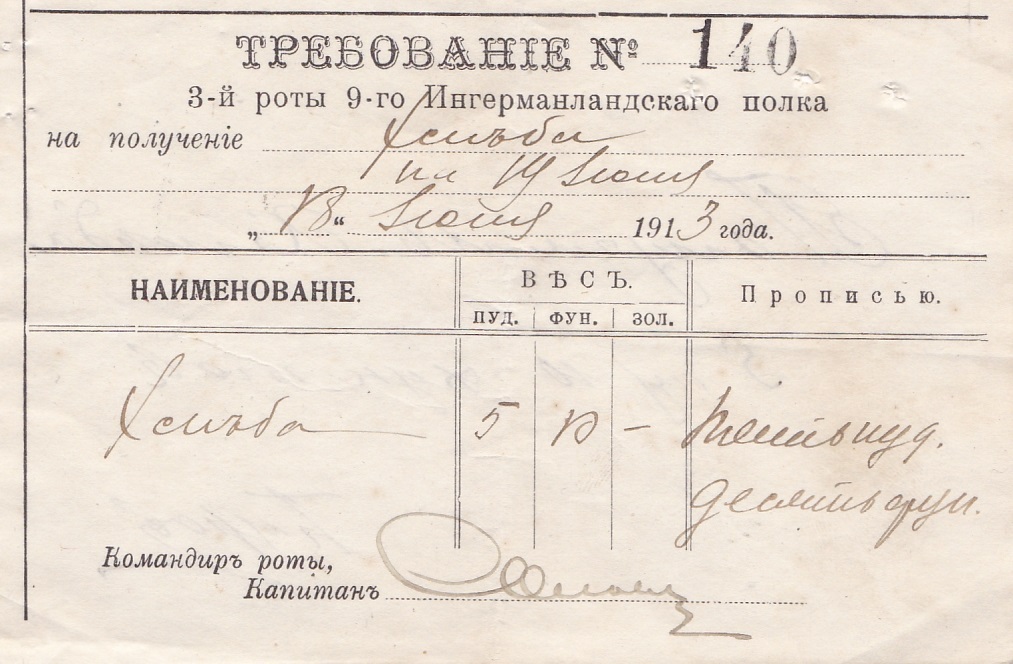 ТРЕБОВАНІЕ № 140
3-й роты 9-го Ингерманландскаго полка
на полученіе хлѣба
на 19 Іюня
„18“ Іюня 1913 года.
НАИМЕНОВАНІЕ. ВѢСЪ. Прописью.
ПУД. ФУН. ЗОЛ.
Хлѣба 5 10 — Пять пуд.
десять фун.
Командиръ роты,
Капитанъ